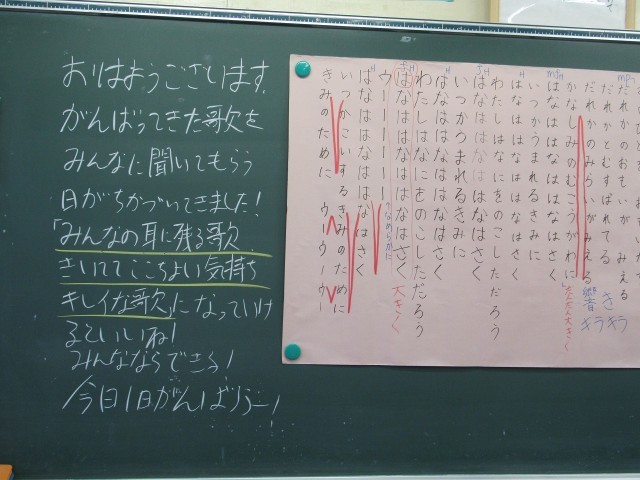 おはようございます。
がんばってきた歌を
みんなに聞いてもらう
日がちかづいてきました!
「みんなの耳に残る歌
きいててここちよい気持ち
キレイな歌」になっていけ
るといいね!
みんなならできる!
今日1日がんばろうー!
mp
だれかのおもいがみえる
だれかとむすばれてる
だれかのみらいがみえる 響き キラキラ
かなしみのむこうがわに だんだん大きく
mf H
はなははなははなはさく
いつかうまれるきみに
H
はなははなははなはさく
わたしはなにをのこしただろう
H
はなははなははなはさく
いつかうまれるきみに
H
はなははなははなはさく
わたしはなにをのこしただろう
H
はなははなははなはさく 大きく
ウーーーーー なめらかに
H
はなははなははなはさく
いつかこいするきみのために
きみのために ウーウーウー